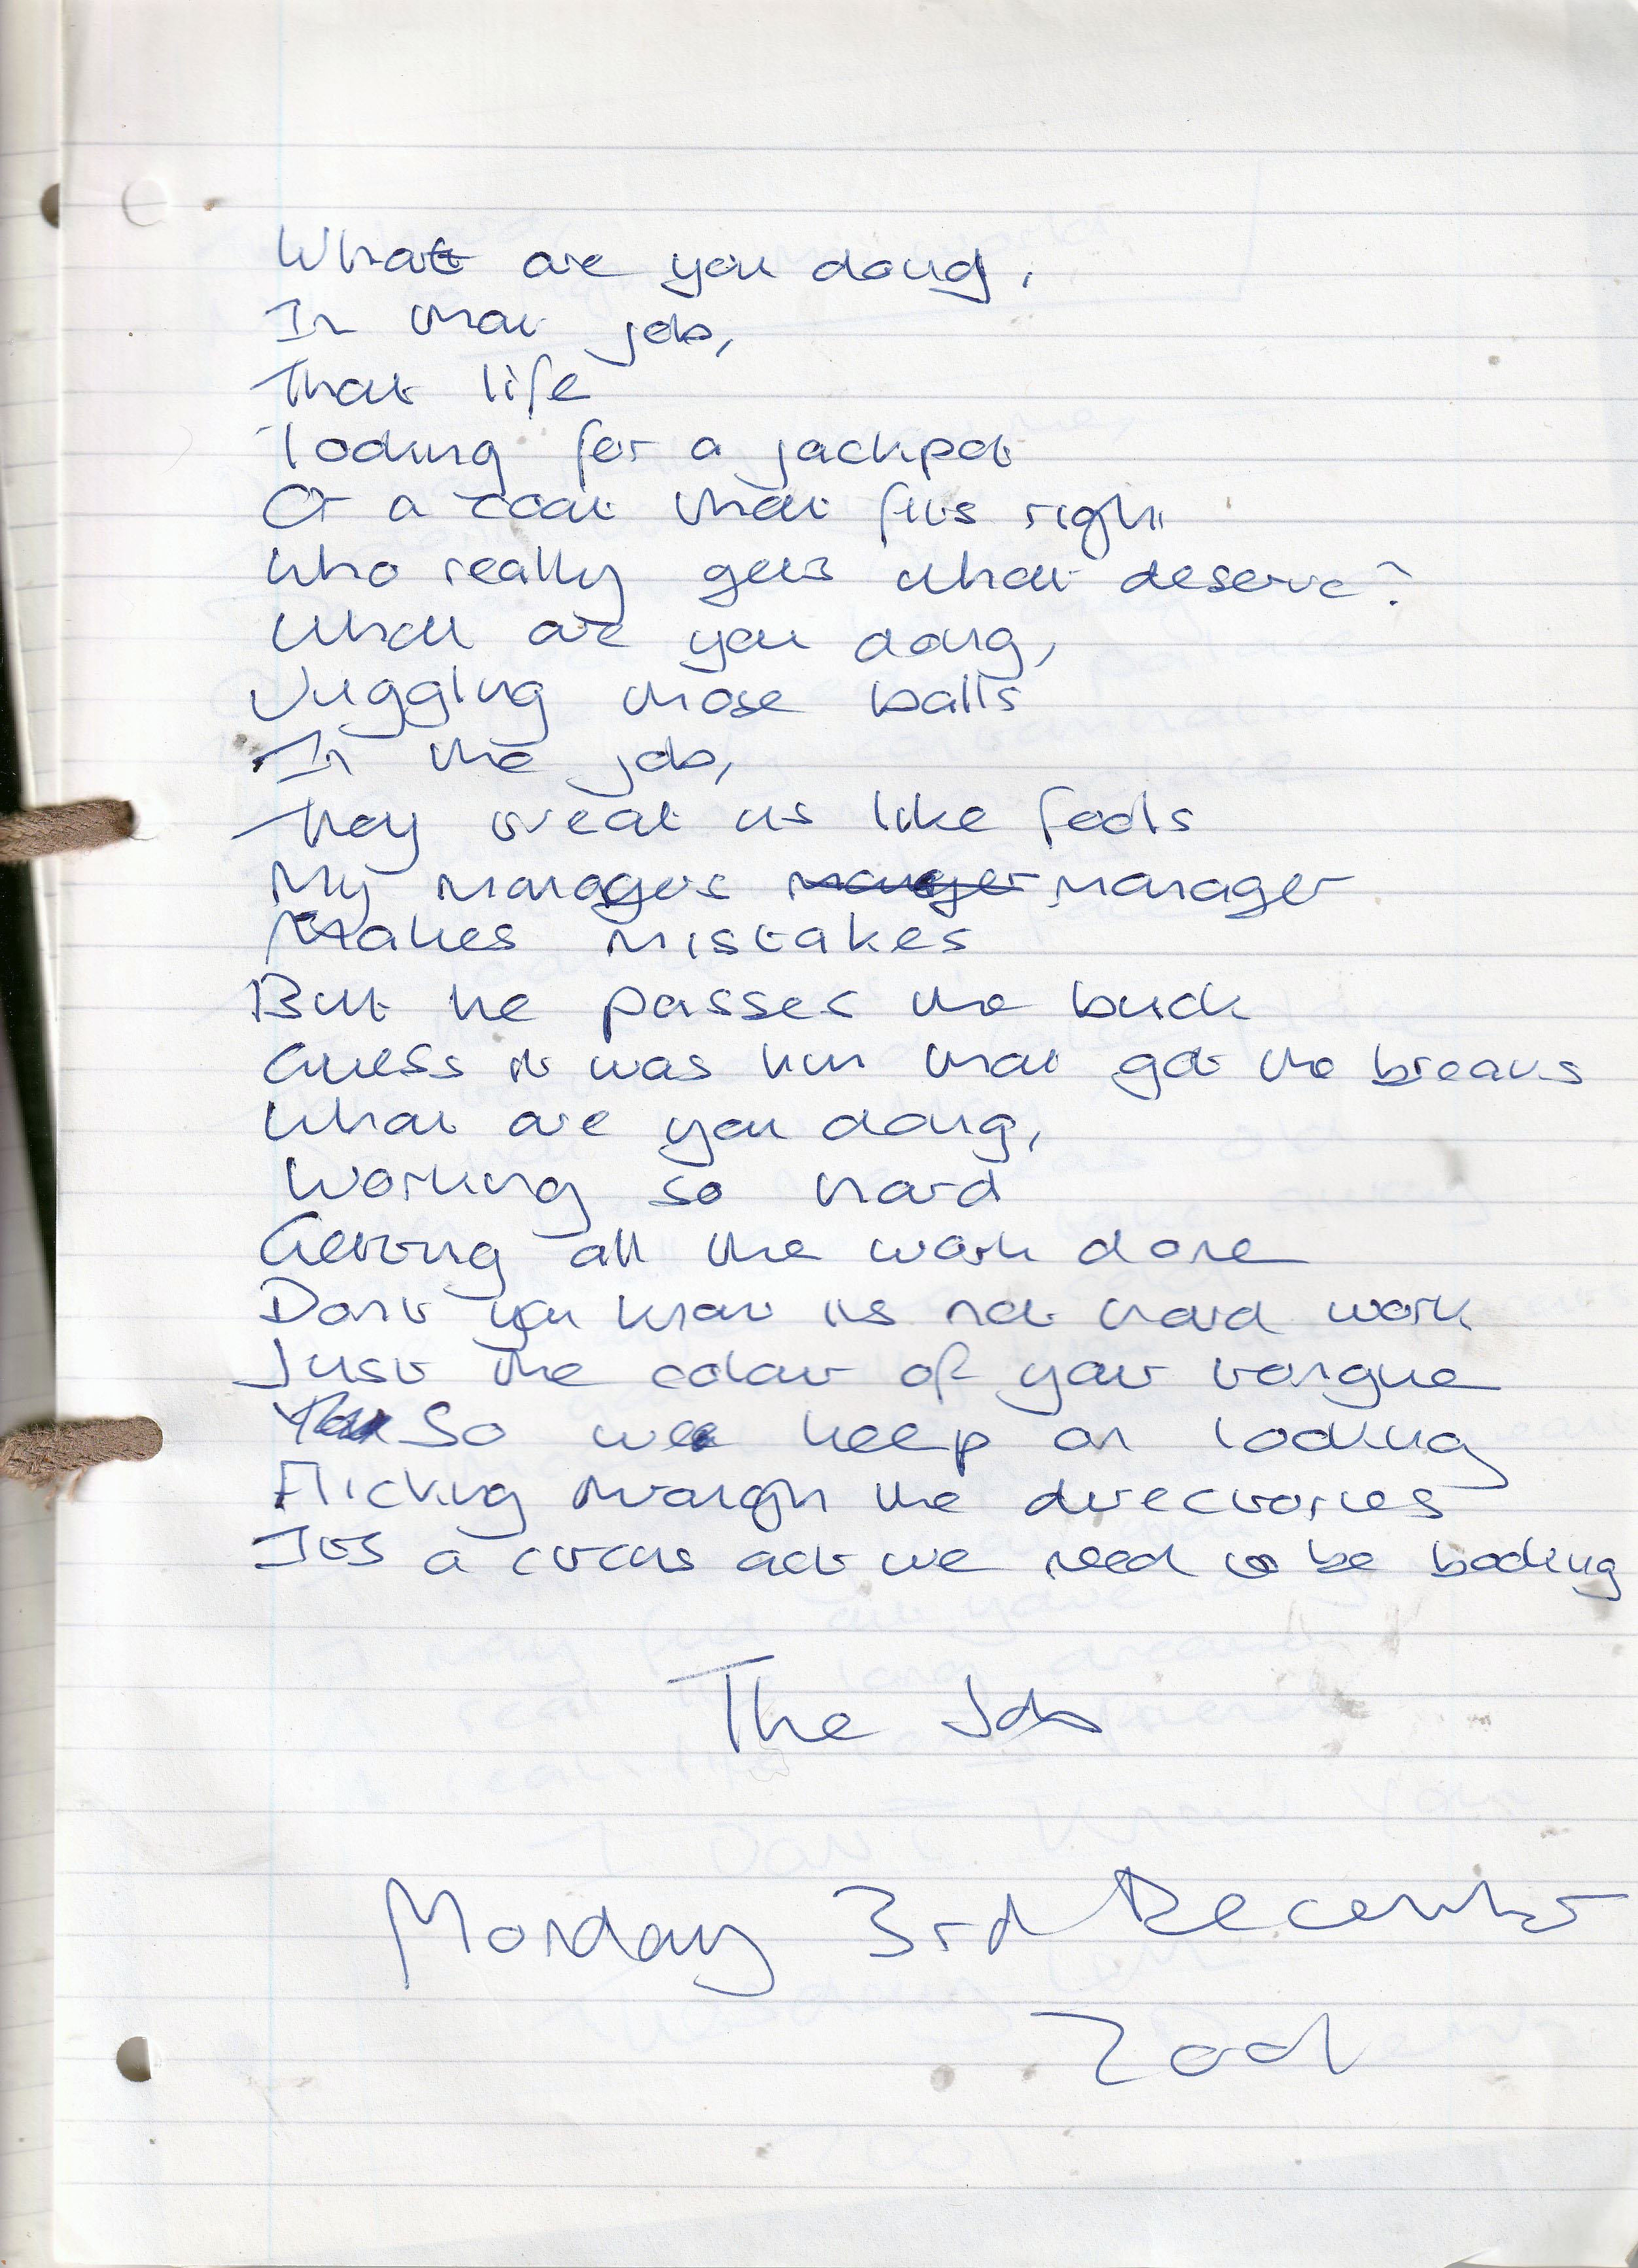 What are you doing,
In that job,
That life
looking for a jackpot
Or a coat that fits right
Who really gets what deserve?
What are you doing,
Juggling those balls
In the job,
They treat us like fools
My managers manager manager
Makes mistakes
But he passes the buck
Guess it was him that got the breaks
What are you doing,
Working so hard
Getting all the work done
Dont you know its not hard work
Just the colour of your tongue
So we keep on looking
Flicking through the directories
Its a circus act we need to be booking
The Job
Monday 3rd December
2001